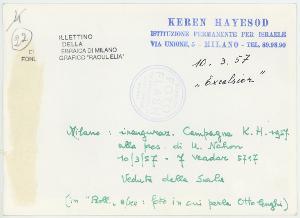 22
KEREN HAYESOD
ISTITUZIONE PERMANENTE PER ISRAELE
VIA UNIONE, 5 - MILANO - TEL. 89.98.90
ILLETTINO
DELLA
EBRAICA DI MILANO
GRAFICO "RAOUL ELIA"
10.3.57
"Excelsior"
Milano: inauguraz. Campagna K.H. 1957
alla pres. di U. Nahon
10/3/57 - 7 Veadar 5717
Veduta della Sala
(in "Boll." c'è: foto in cui parla Otto